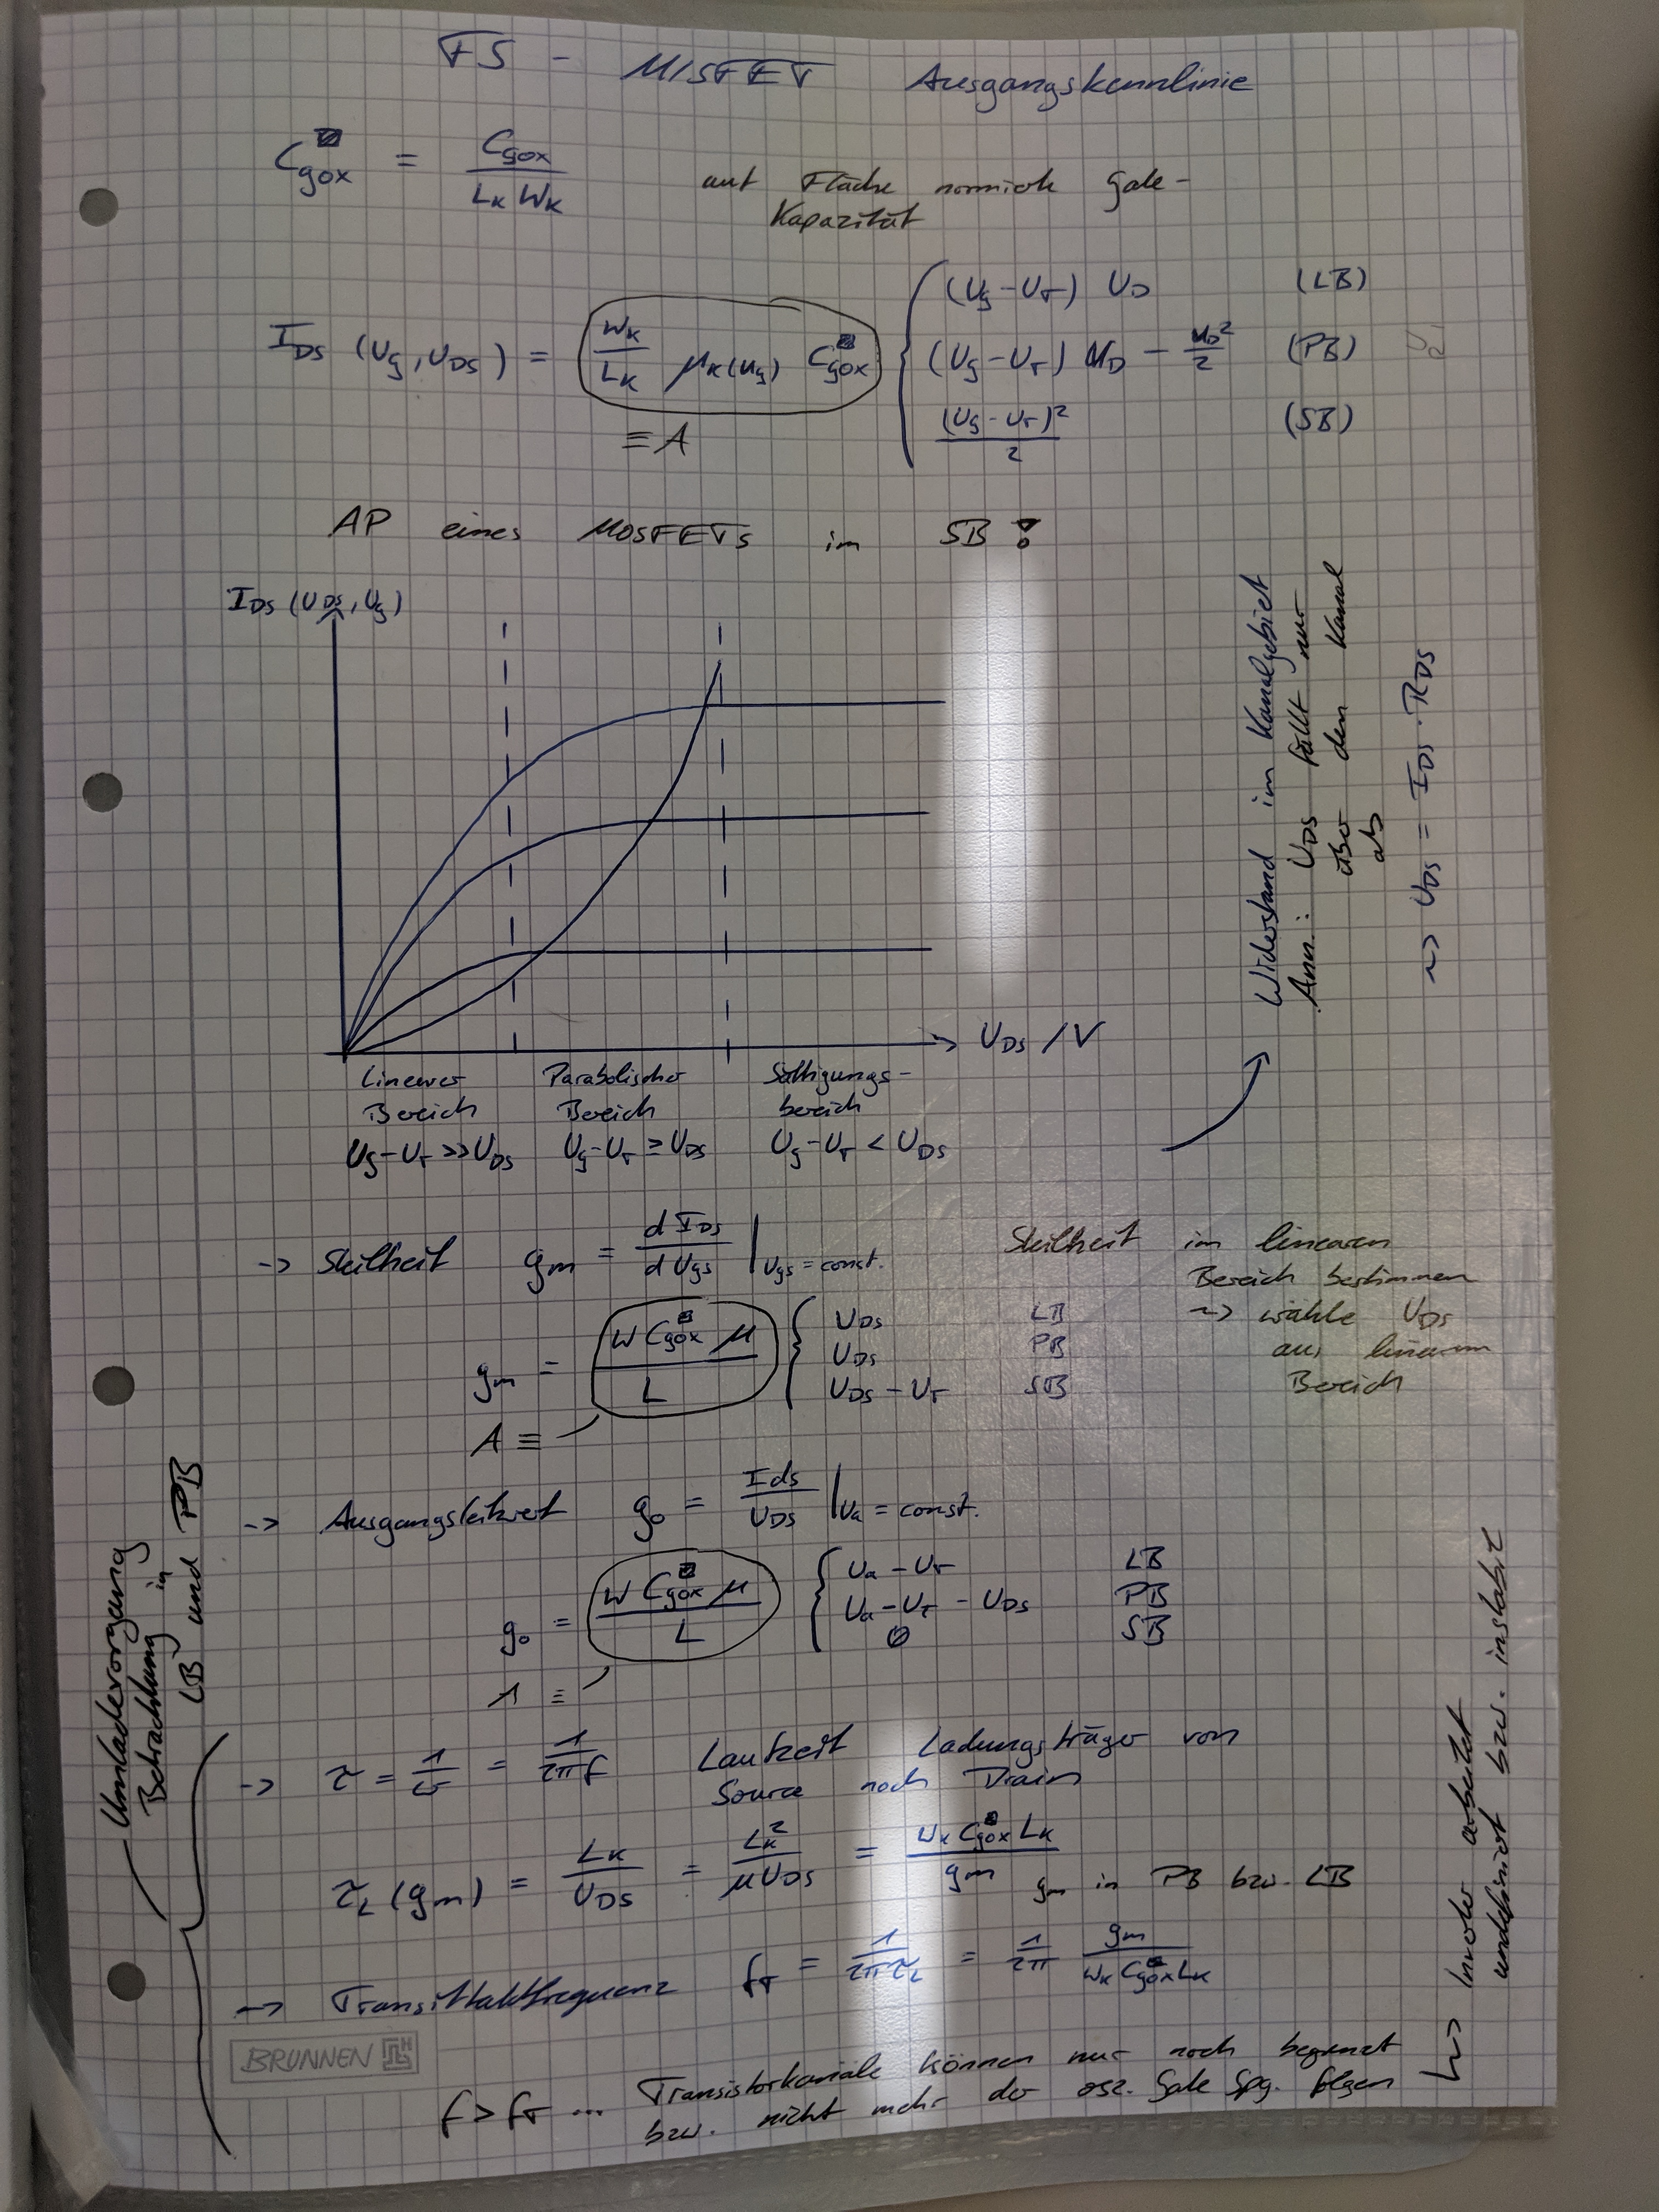 FS - MISFET Ausgangskennlinie
C_gox^□ = C_gox / (L_K W_K) auf Fläche normierte Gate-
Kapazität
I_DS (U_g, U_DS) = W_K/L_K μ_K(U_g) C_gox^□ { (U_g - U_T) U_D (LB)
(U_g - U_T) U_D - U_D²/2 (PB)
(U_g - U_T)²/2 (SB)
≡ A
AP eines MOSFETs im SB !
I_DS (U_DS, U_g)
U_DS / V
Linearer Bereich
U_g - U_T >> U_DS
Parabolischer Bereich
U_g - U_T ≥ U_DS
Sättigungs-
bereich
U_g - U_T < U_DS
Widerstand im Kanalgebiet
Ann.: U_DS fällt nur
über den Kanal
ab
~> U_DS = I_DS · R_DS
-> Steilheit g_m = d I_DS / d U_gs |_U_gs = const.
Steilheit im linearen
Bereich bestimmen
~> wähle U_DS
aus linearem
Bereich
g_m = W C_gox^□ μ / L { U_DS LB
U_DS PB
U_DS - U_T SB
A ≡
-> Ausgangsleitwert g_0 = I_ds / U_DS |_U_a = const.
g_0 = W C_gox^□ μ / L { U_a - U_T LB
U_a - U_T - U_DS PB
0 SB
A ≡
Umladevorgang
Betrachtung in
LB und PB
-> τ = 1/ω = 1/(2πf) Laufzeit Ladungsträger von
Source nach Drain
τ_L (g_m) = L_K / U_DS = L_K² / (μ U_DS) = W_K C_gox^□ L_K / g_m g_m in PB bzw. LB
-> Transittaktfrequenz f_T = 1/(2π τ_L) = 1/(2π) g_m / (W_K C_gox^□ L_K)
BRUNNEN
f > f_T ... Transistorkanäle können nur noch begrenzt
bzw. nicht mehr der osz. Gate Spg. folgen
~> Inverter arbeitet
undefiniert bzw. instabil